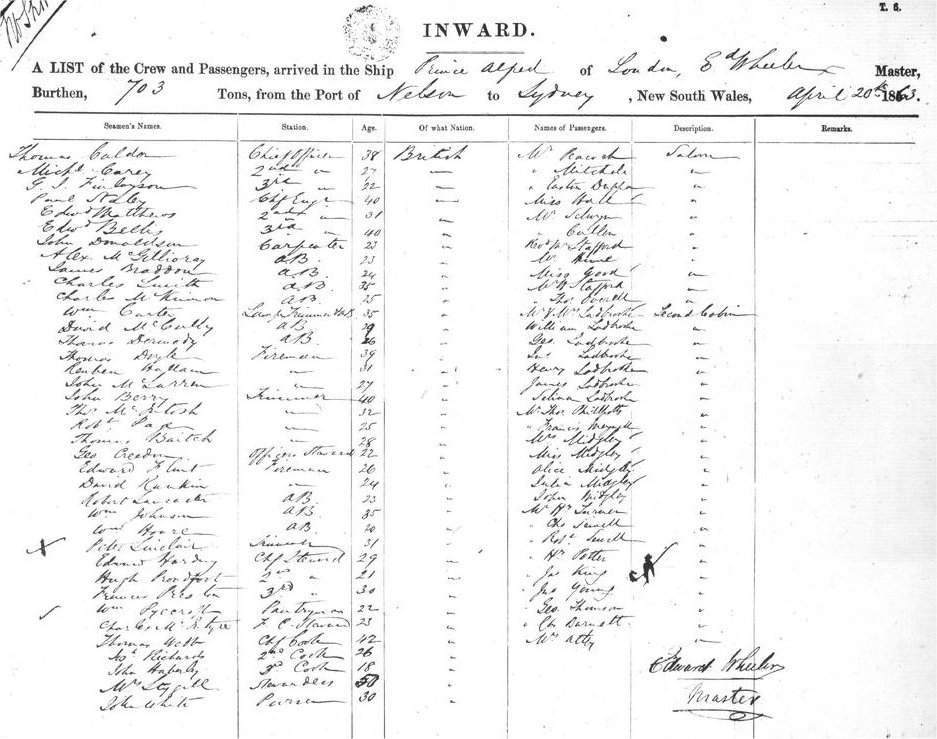 T. 6.
INWARD.
A LIST of the Crew and Passengers, arrived in the Ship Prince Alfred of London, Ed Wheeler Master,
Burthen, 703 Tons, from the Port of Nelson to Sydney, New South Wales, April 20th 1863.
Seamen's Names. Station. Age. Of what Nation. Names of Passengers. Description. Remarks.
Thomas Caldon Chief Officer 38 British Mr Peacock Saloon
Michl Carey 2nd " 27 " " Mitchel "
G. S. Finlayson 3rd " 22 " " Easton Duppa "
Paul Staley Chf Engr 40 " Miss Hall "
Edwd Matthews 2nd " 31 " Mr Selwyn "
Edwd Bellis 3rd " 40 " " Cullen "
John Donaldson Carpenter 23 " Revd Stafford "
Alex. McGillioray AB. 23 " Mr Hume "
James Braddon AB. 24 " Miss Good "
Charles Smith AB. 35 " Mr Stafford "
Charles McKinnon AB. 25 " " Thos "
Wm Carter Lamp Trimmer 35 " Mr & Mrs Ladbrooke Second Cabin
David McCully AB 29 " William Ladbrooke "
Thomas Dermody AB 26 " Geo. Ladbrooke "
Thomas Doyle Fireman 39 " Ladbrooke "
Reuben Hallam " 31 " Henry Ladbrooke "
John McLarren " 27 " James Ladbrooke "
John Berry Trimmer 40 " Selina Ladbrooke "
Thos McIntosh " 32 " Mr Thos Phillpotts "
Robt Pax " 25 " " Francis "
Thomas Baitch " 28 " Mrs Midgley "
Geo Creedon Officers Steward 22 " Miss Midgley "
Edward Flint Fireman 26 " Alice Midgley "
David Rankin " 24 " Julia Midgley "
Robert Lancaster AB 23 " John Midgley "
Wm Johnson AB. 35 " Mr Hy Turner "
Wm Hoare AB 20 " " Chs Sewell "
Peter Sinclair Trimmer 31 " " Robt Sewell "
Edward Harding Chf Steward 29 " " Hy Potter "
Hugh Proudfoot 2nd " 21 " " Jas King "
Francis Preston 3rd " 30 " " Jas Young "
Wm Pyecroft Pantryman 22 " " Geo Thomson "
Charles McIntyre F. C. Steward 23 " " Ch Barnett "
Thomas Webb Chf Cook 42 " Mrs Atley "
Jos. Richards 2nd Cook 26 "
John Haberley 3rd Cook 18 "
Mrs Stygall Stewardess 50 "
John White Purser 30 "
Edward Wheeler
Master